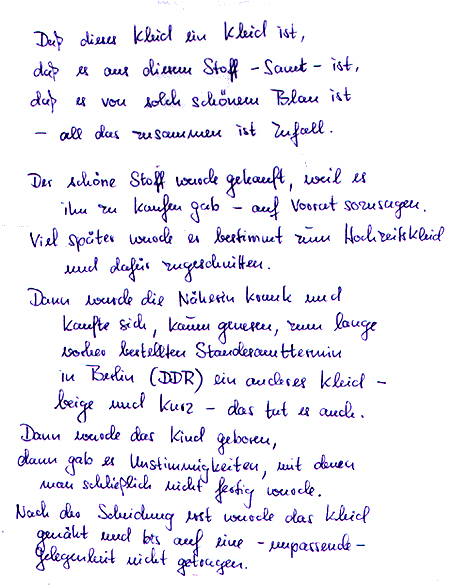 Daß dieses Kleid ein Kleid ist,
daß es aus diesem Stoff - Samt - ist,
daß es von solch schönem Blau ist
- all das zusammen ist Zufall.
Der schöne Stoff wurde gekauft, weil es
ihn zu kaufen gab - auf Vorrat sozusagen.
Viel später wurde er bestimmt zum Hochzeitskleid
und dafür zugeschnitten.
Dann wurde die Näherin krank und
kaufte sich, kaum genesen, zum lange
vorher bestellten Standesamttermin
in Berlin (DDR) ein anderes Kleid -
beige und kurz - das tut es auch.
Dann wurde das Kind geboren,
dann gab es Unstimmigkeiten, mit denen
man schließlich nicht fertig wurde.
Nach der Scheidung erst wurde das Kleid
genäht und bis auf eine - unpassende -
Gelegenheit nicht getragen.